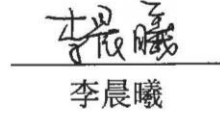 李晨曦
李晨曦